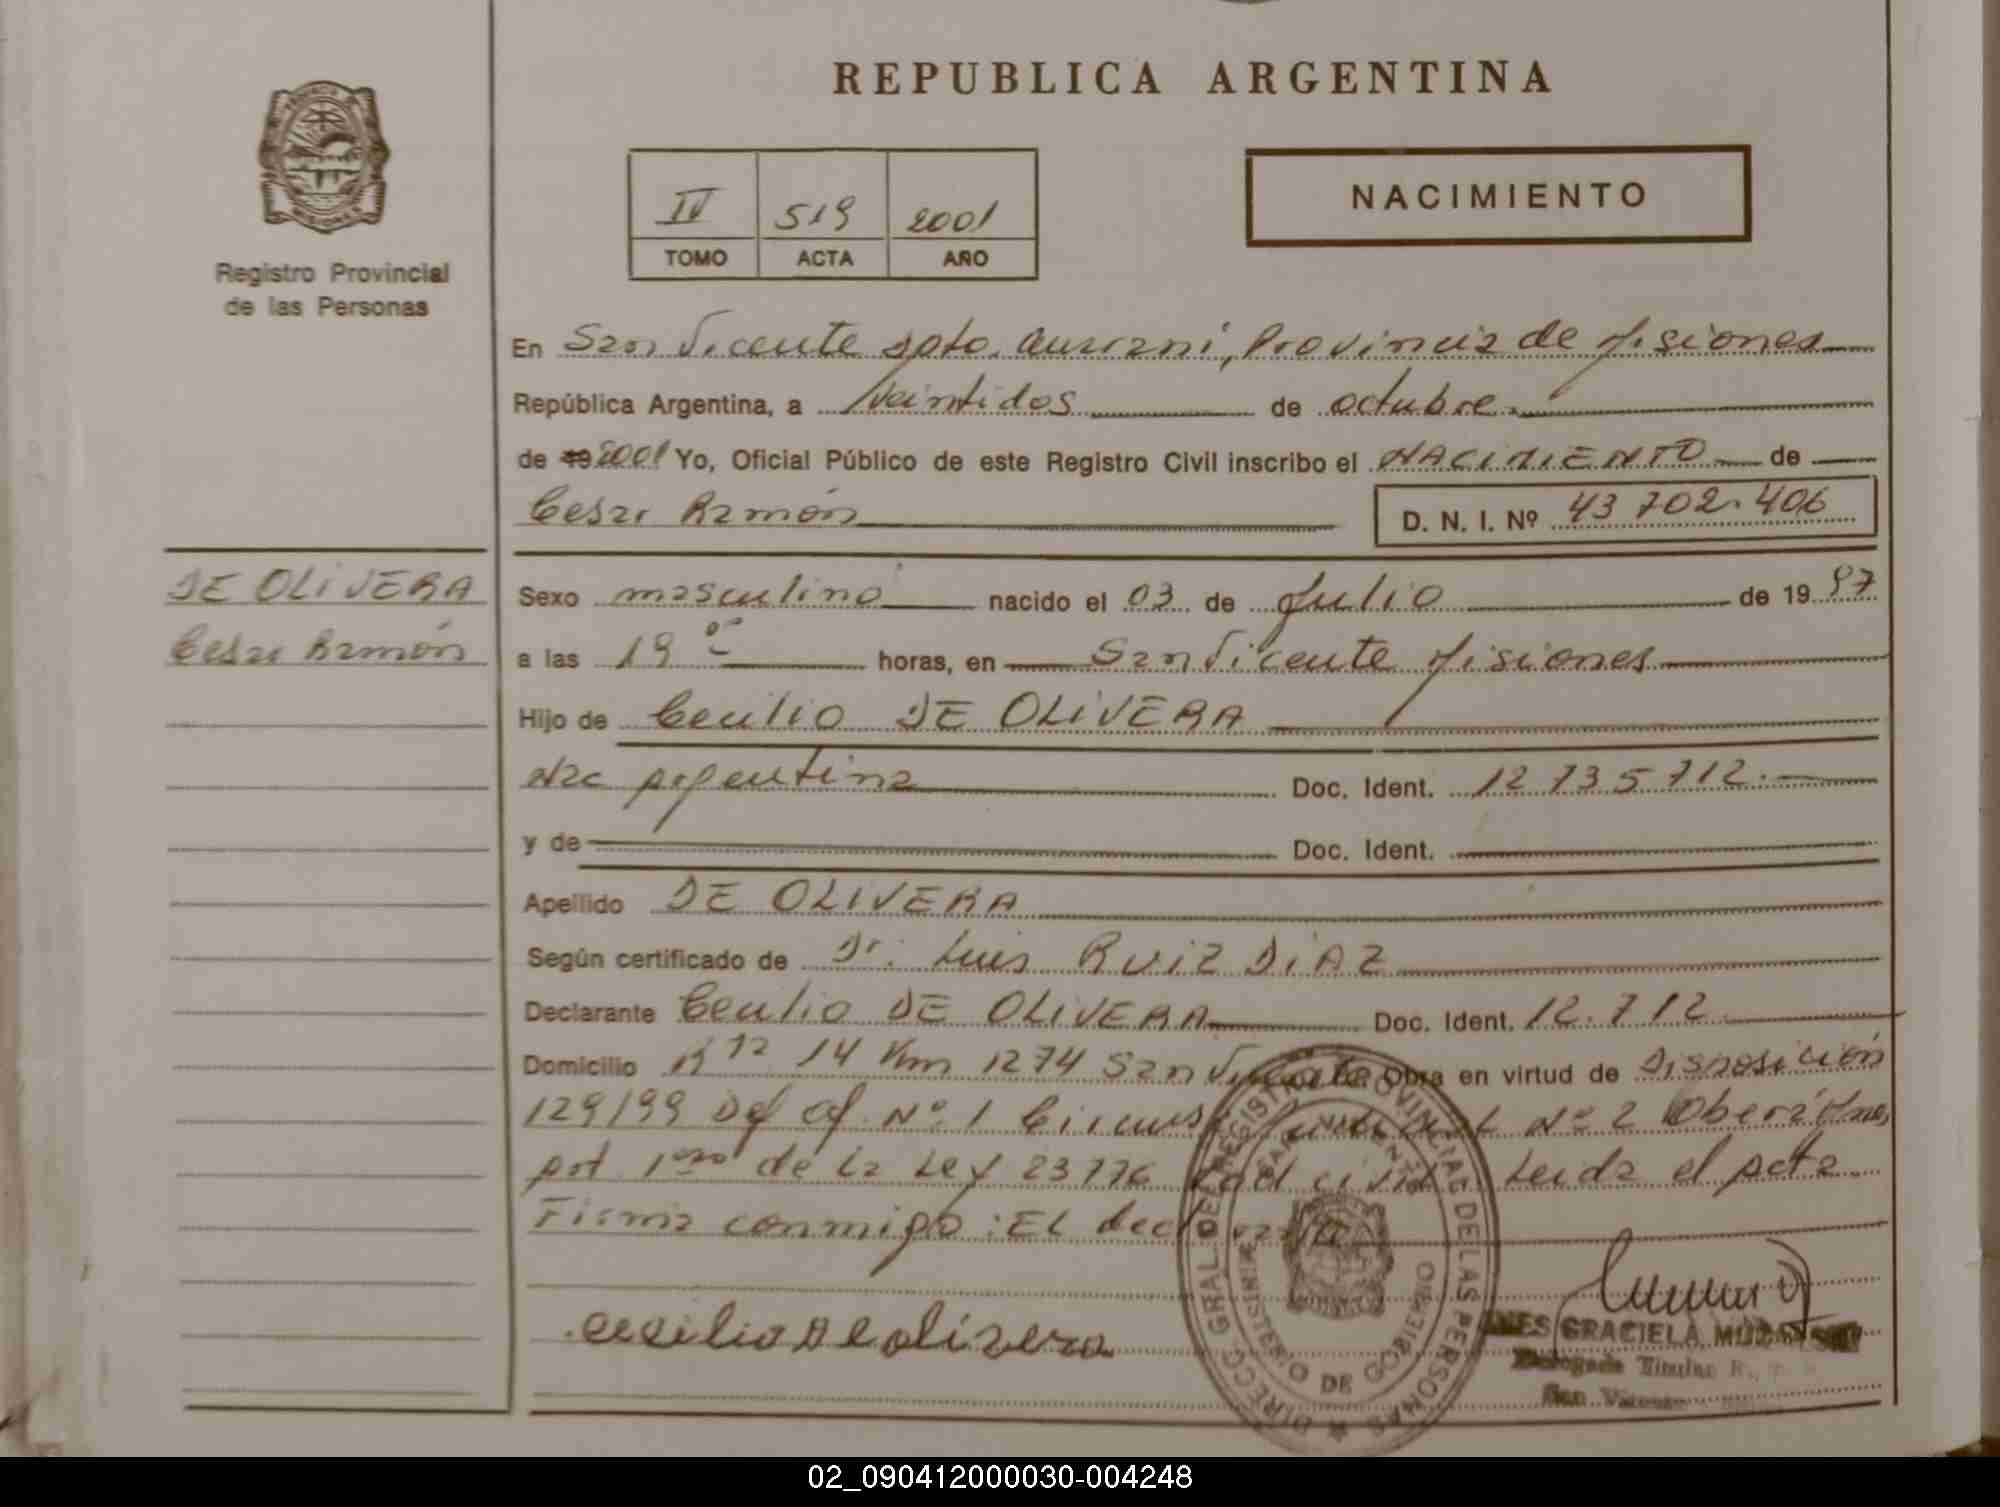 REPUBLICA ARGENTINA
NACIMIENTO
IV 519 2001
TOMO ACTA AÑO
Registro Provincial
de las Personas
En San Vicente Dpto. Guaraní, Provincia de Misiones
República Argentina, a Veintidos de octubre
de 19 2001 Yo, Oficial Público de este Registro Civil inscribo el NACIMIENTO de
Cesar Ramón D. N. I. Nº 43 702.406
DE OLIVERA
Cesar Ramón
Sexo masculino nacido el 03 de Julio de 19 97
a las 19 horas, en San Vicente Misiones
Hijo de Cecilio DE OLIVERA
Nac Argentina Doc. Ident. 12 735 712
y de Doc. Ident.
Apellido DE OLIVERA
Según certificado de Dr. Luis RUIZ DIAZ
Declarante Cecilio DE OLIVERA Doc. Ident. 12.712
Domicilio Rta 14 Km 1274 San Vicente Obra en virtud de Disposición
129/99 Def Of. Nº 1 Nº 2 Oberá
Art 1ero de la Ley 23776 Leida el acta
Firma conmigo: El declarante
Cecilio De olivera
DIRECC GRAL DEL REGISTRO PROVINCIAL DE LAS PERSONAS
MINISTERIO DE GOBIERNO
INES GRACIELA
Delegada Titular R.
San Vicente
02_090412000030-004248